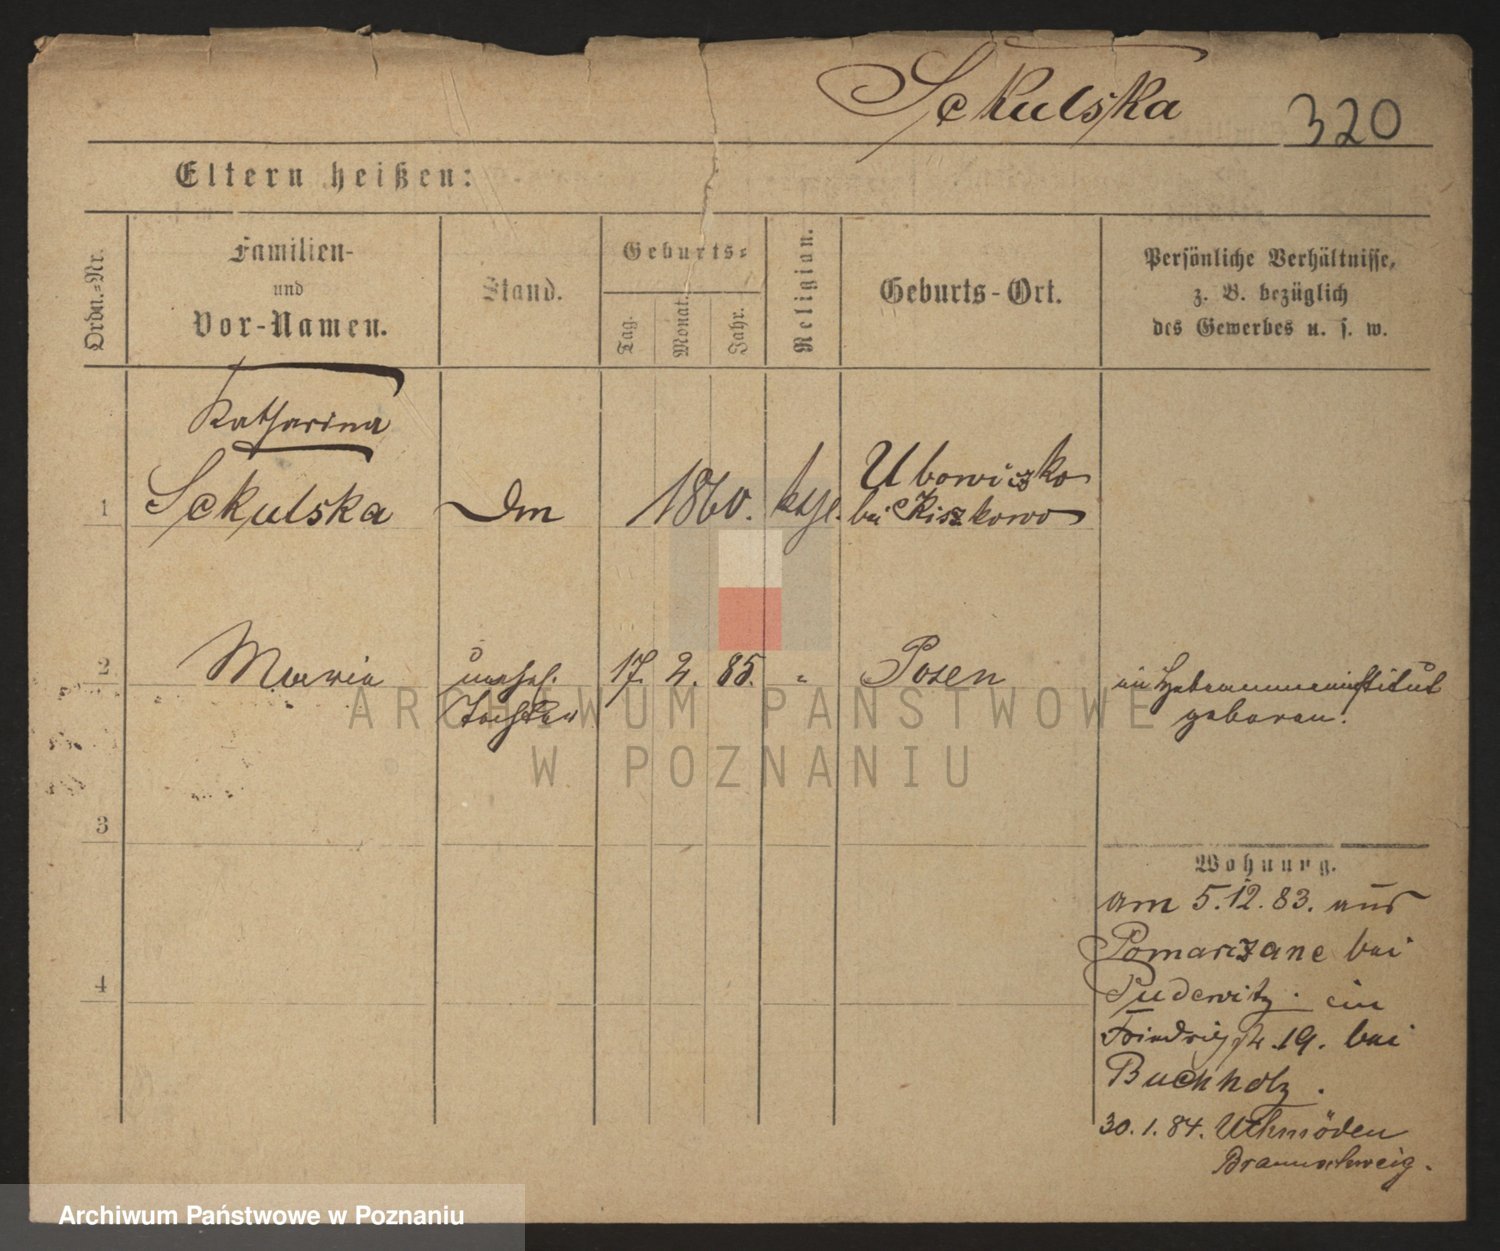 Sckulska 320
Eltern heißen:
Ordn.-Nr.
Familien-
und
Vor-Namen.
Stand.
Geburts-
Tag.
Monat.
Jahr.
Religian.
Geburts-Ort.
Persönliche Verhältnisse,
z. B. bezüglich
des Gewerbes u. s. w.
Katharina
1 Sckulska Dm 1860. kth. Ubowiczko
bei Kiszkowo
2 Maria unehel. 17. 2. 85. " Posen im Hebammeninstitut
Tochter geboren.
ARCHIWUM PAŃSTWOWE
W POZNANIU
3
Wohnung.
am 5.12.83. aus
Pomarzane bei
4
Pudewitz. in
Friedrichstr. 19. bei
Buchholz.
30.1.84. Uthmöden
Braunschweig.
Archiwum Państwowe w Poznaniu